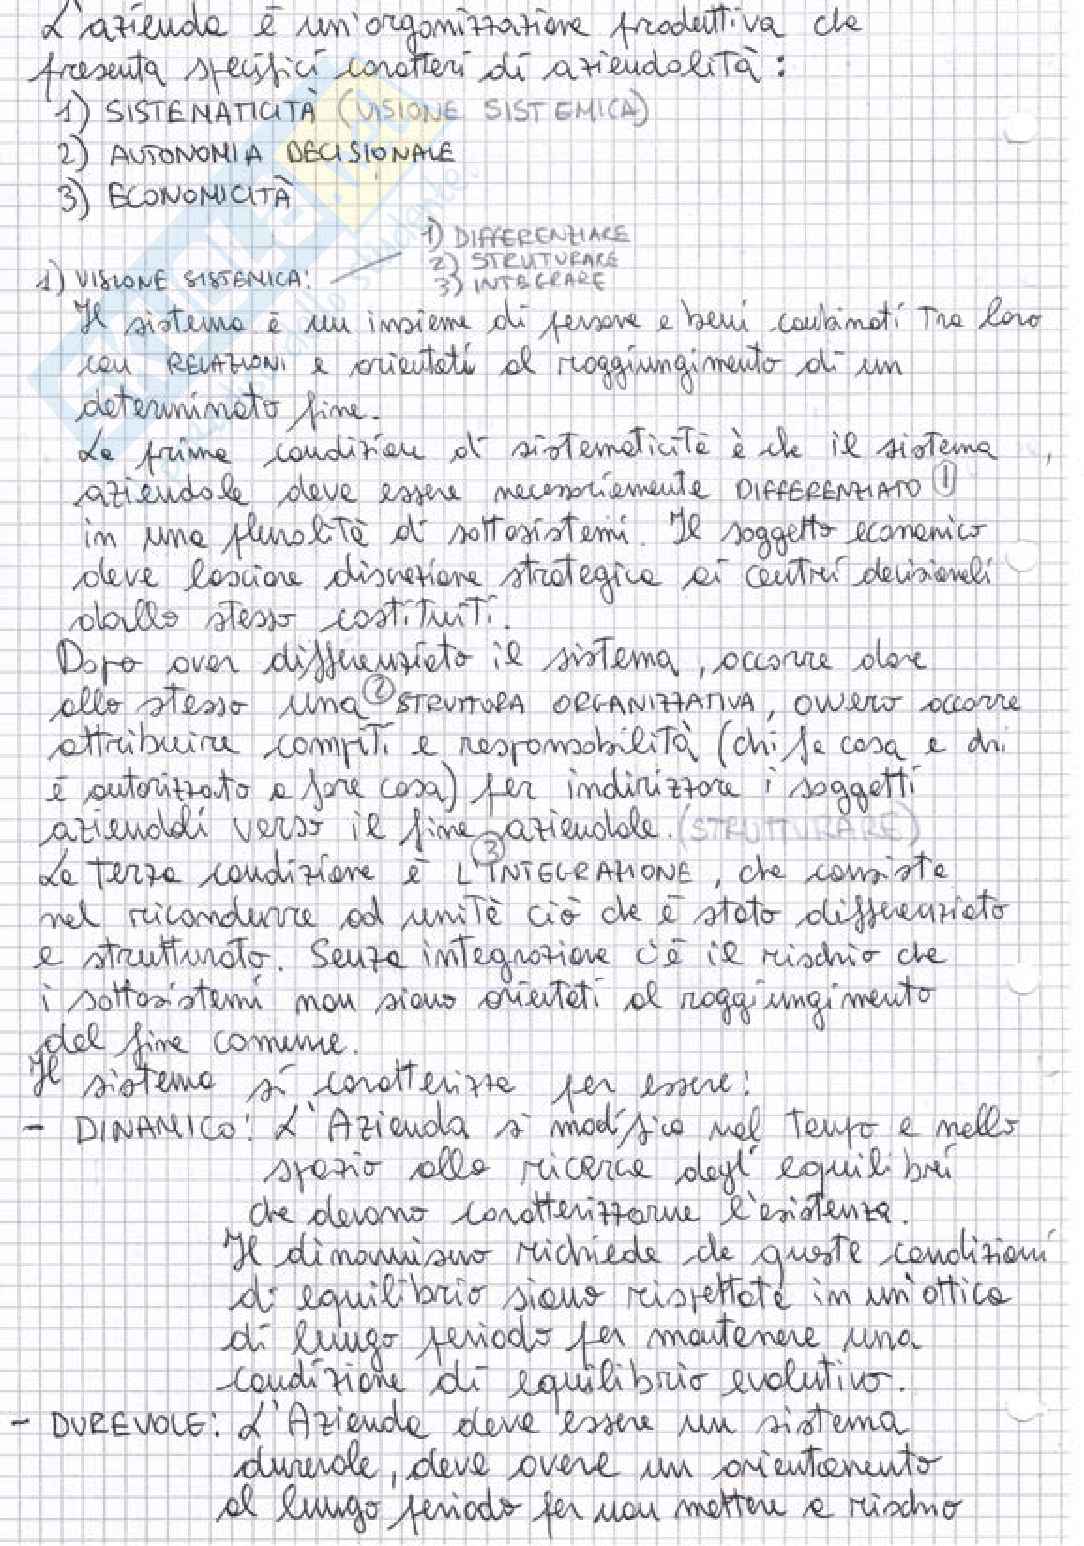 L'azienda è un'organizzazione produttiva che
presenta specifici caratteri di aziendalità:
1) SISTEMATICITÀ (VISIONE SISTEMICA)
2) AUTONOMIA DECISIONALE
3) ECONOMICITÀ
1) DIFFERENZIARE
2) STRUTTURARE
3) INTEGRARE
1) VISIONE SISTEMICA:
Il sistema è un insieme di persone e beni combinati tra loro
con RELAZIONI e orientati al raggiungimento di un
determinato fine.
La prima condizione di sistematicità è che il sistema
aziendale deve essere necessariamente DIFFERENZIATO ①
in una pluralità di sottosistemi. Il soggetto economico
deve lasciare discrezione strategica ai centri decisionali
dallo stesso costituiti.
Dopo aver differenziato il sistema, occorre dare
allo stesso una ② STRUTTURA ORGANIZZATIVA, ovvero occorre
attribuire compiti e responsabilità (chi fa cosa e chi
è autorizzato a fare cosa) per indirizzare i soggetti
aziendali verso il fine aziendale. (STRUTTURARE)
La terza condizione è L'③INTEGRAZIONE, che consiste
nel ricondurre ad unità ciò che è stato differenziato
e strutturato. Senza integrazione c'è il rischio che
i sottosistemi non siano orientati al raggiungimento
del fine comune.
Il sistema si caratterizza per essere:
- DINAMICO: L'Azienda si modifica nel tempo e nello
spazio alla ricerca degli equilibri
che devono caratterizzarne l'esistenza.
Il dinamismo richiede che queste condizioni
di equilibrio siano rispettate in un'ottica
di lungo periodo per mantenere una
condizione di equilibrio evolutivo.
- DUREVOLE: L'Azienda deve essere un sistema
durevole, deve avere un orientamento
al lungo periodo per non mettere a rischio